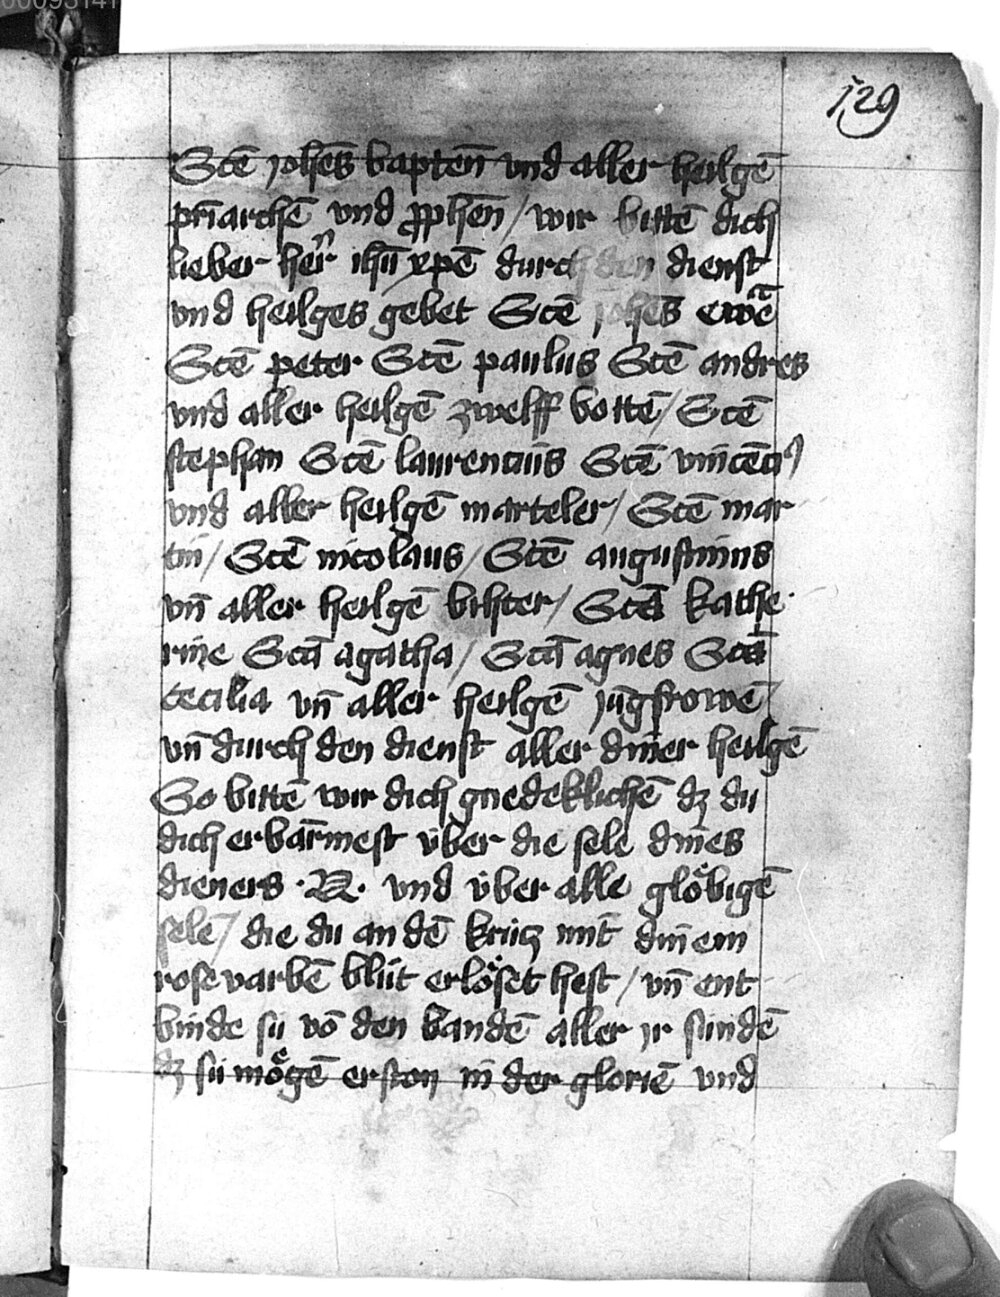 00093141
129
Stē joh̄es bapten̄ vnd aller heilgē
pr̄iarchē vnd ꝓphen̄ / wir bittē dich
lieber her̄ ih̄u xp̄e durch den dienst
vnd heilges gebet Stē joh̄es ewē
Stē peter Stē paulus Stē andres
vnd aller heilgē zwelff bottē / Stē
stephan Stē laurencius Stē vincēciꝰ
vnd aller heilgē marteler / Stē mar
tin / Stē nicolaus / Stē augustinus
vn̄ aller heilgē bihter / Stā kathe
rine Stā agatha / Stā agnes Stā
cecilia vn̄ aller heilgē jūgfrowē
vn̄ durch den dienst aller diner heilgē
So bittē wir dich gnedeklichē dz du
dich erbar̄mest v̈ber die sele dines
dieners · N · vnd v̈ber alle glöbigē
selē / die du an dē krütz mit dinem
rosevarbē blůt erlöset hest / vn̄ ent
binde sü vō den bandē aller jr sündē
dz sü mögē erston in der gloriē vnd